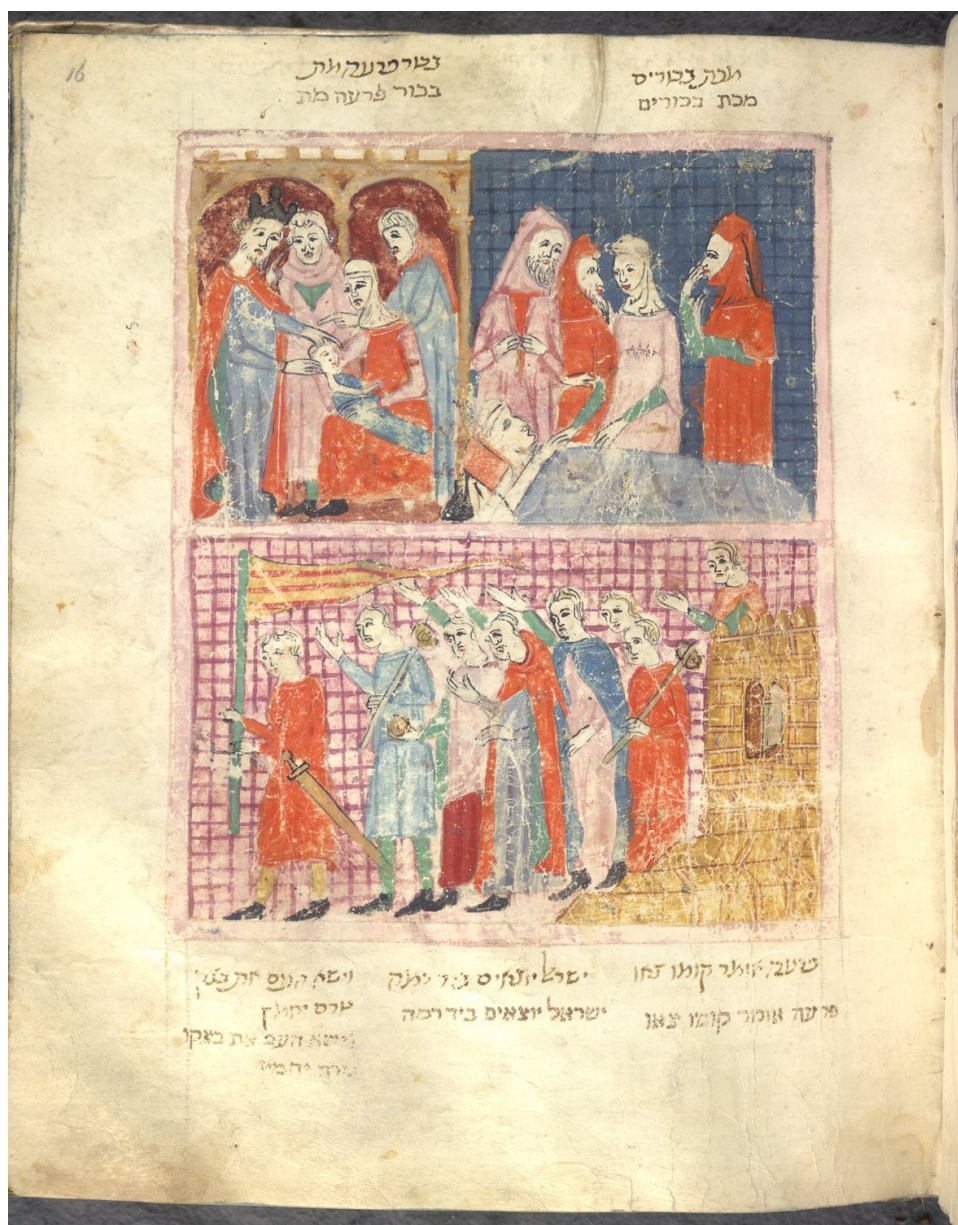 16
מכת בכורים
מכת בכורים
בכור פרעה מת
בכור פרעה מת
פרעה אומר קומו צאו
פרעה אומר קומו צאו
ישראל יוצאים ביד רמה
ישראל יוצאים ביד רמה
וישא העם את בצקו
טרם יחמץ
וישא העם את בצקו
טרם יחמץ